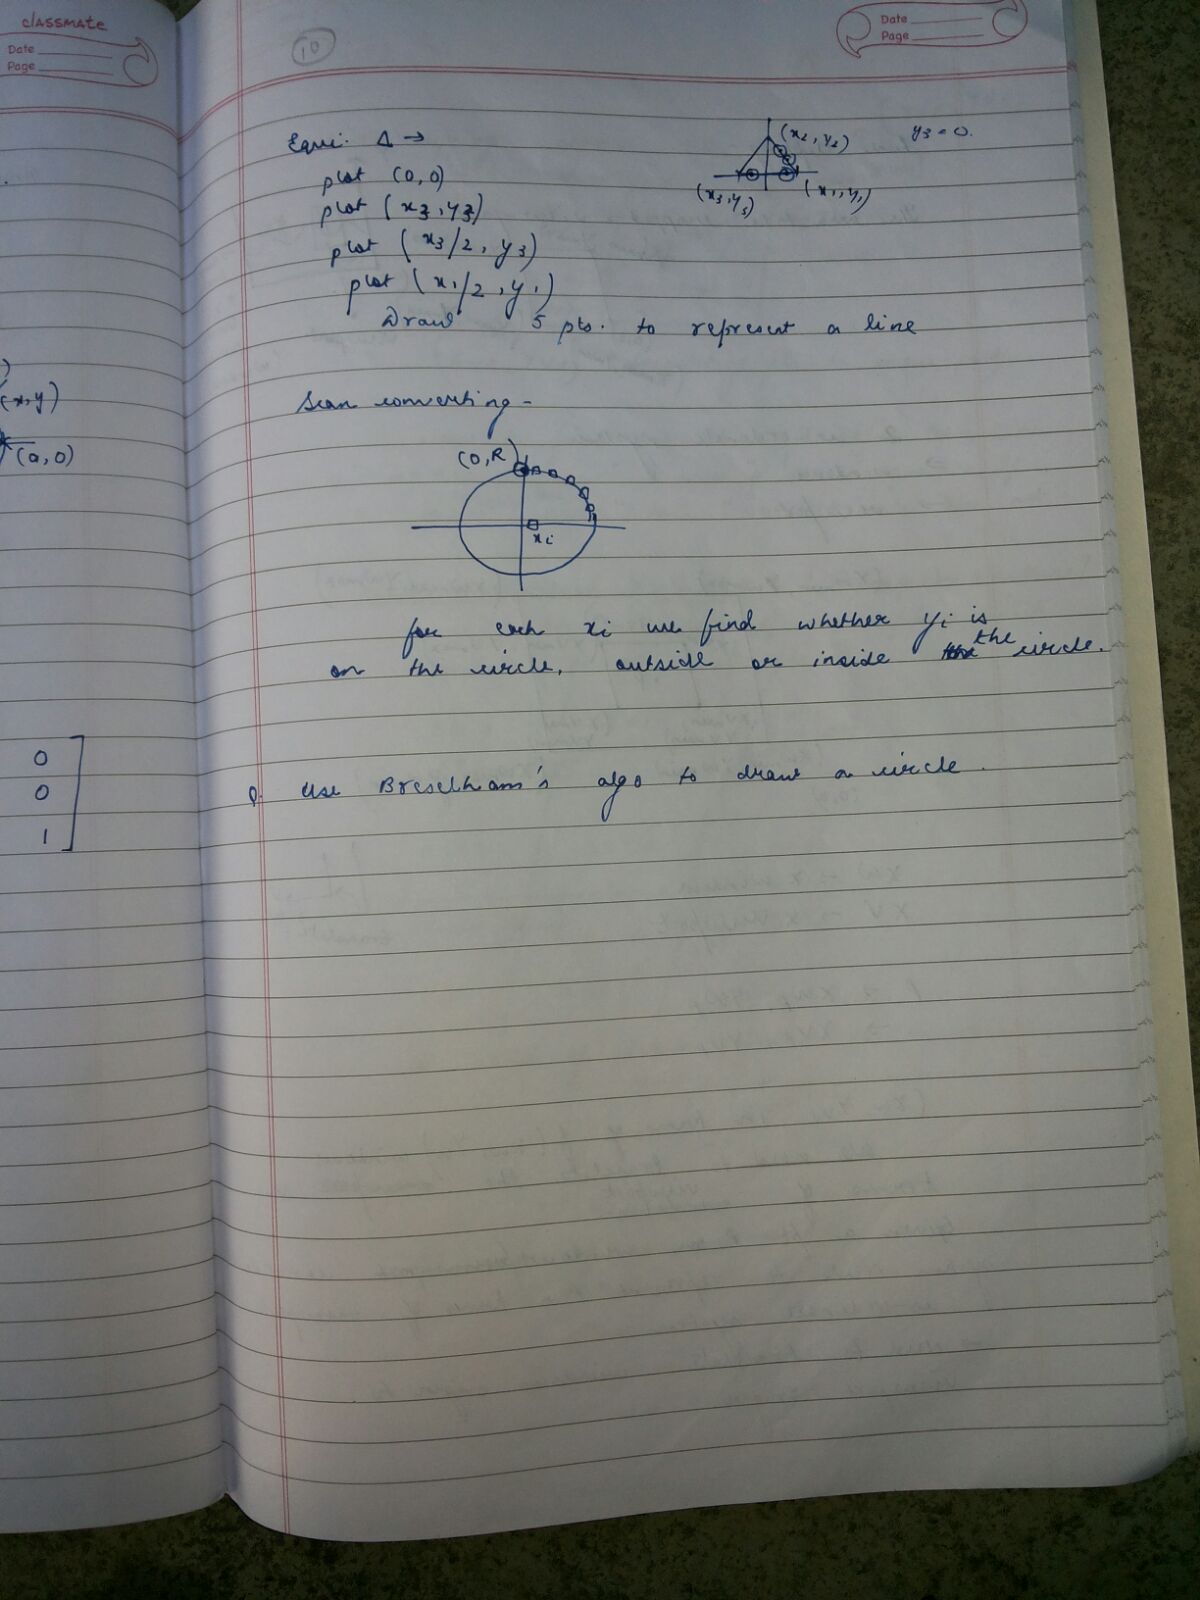 classmate
Date
Page
(x,y)
(a,0)
0
0
1
10
Date
Page
Equi. Δ →
plot (0,0)
plot (x3,y3)
plot (x3/2, y3)
plot (x1/2, y1)
Draw 5 pts. to represent a line
(x2,y2)
y3=0.
(x3,y3)
(x1,y1)
Scan converting -
(0,R)
xi
for each xi we find whether yi is
on the circle, outside or inside the circle.
Q. Use Breselham's algo to draw a circle.